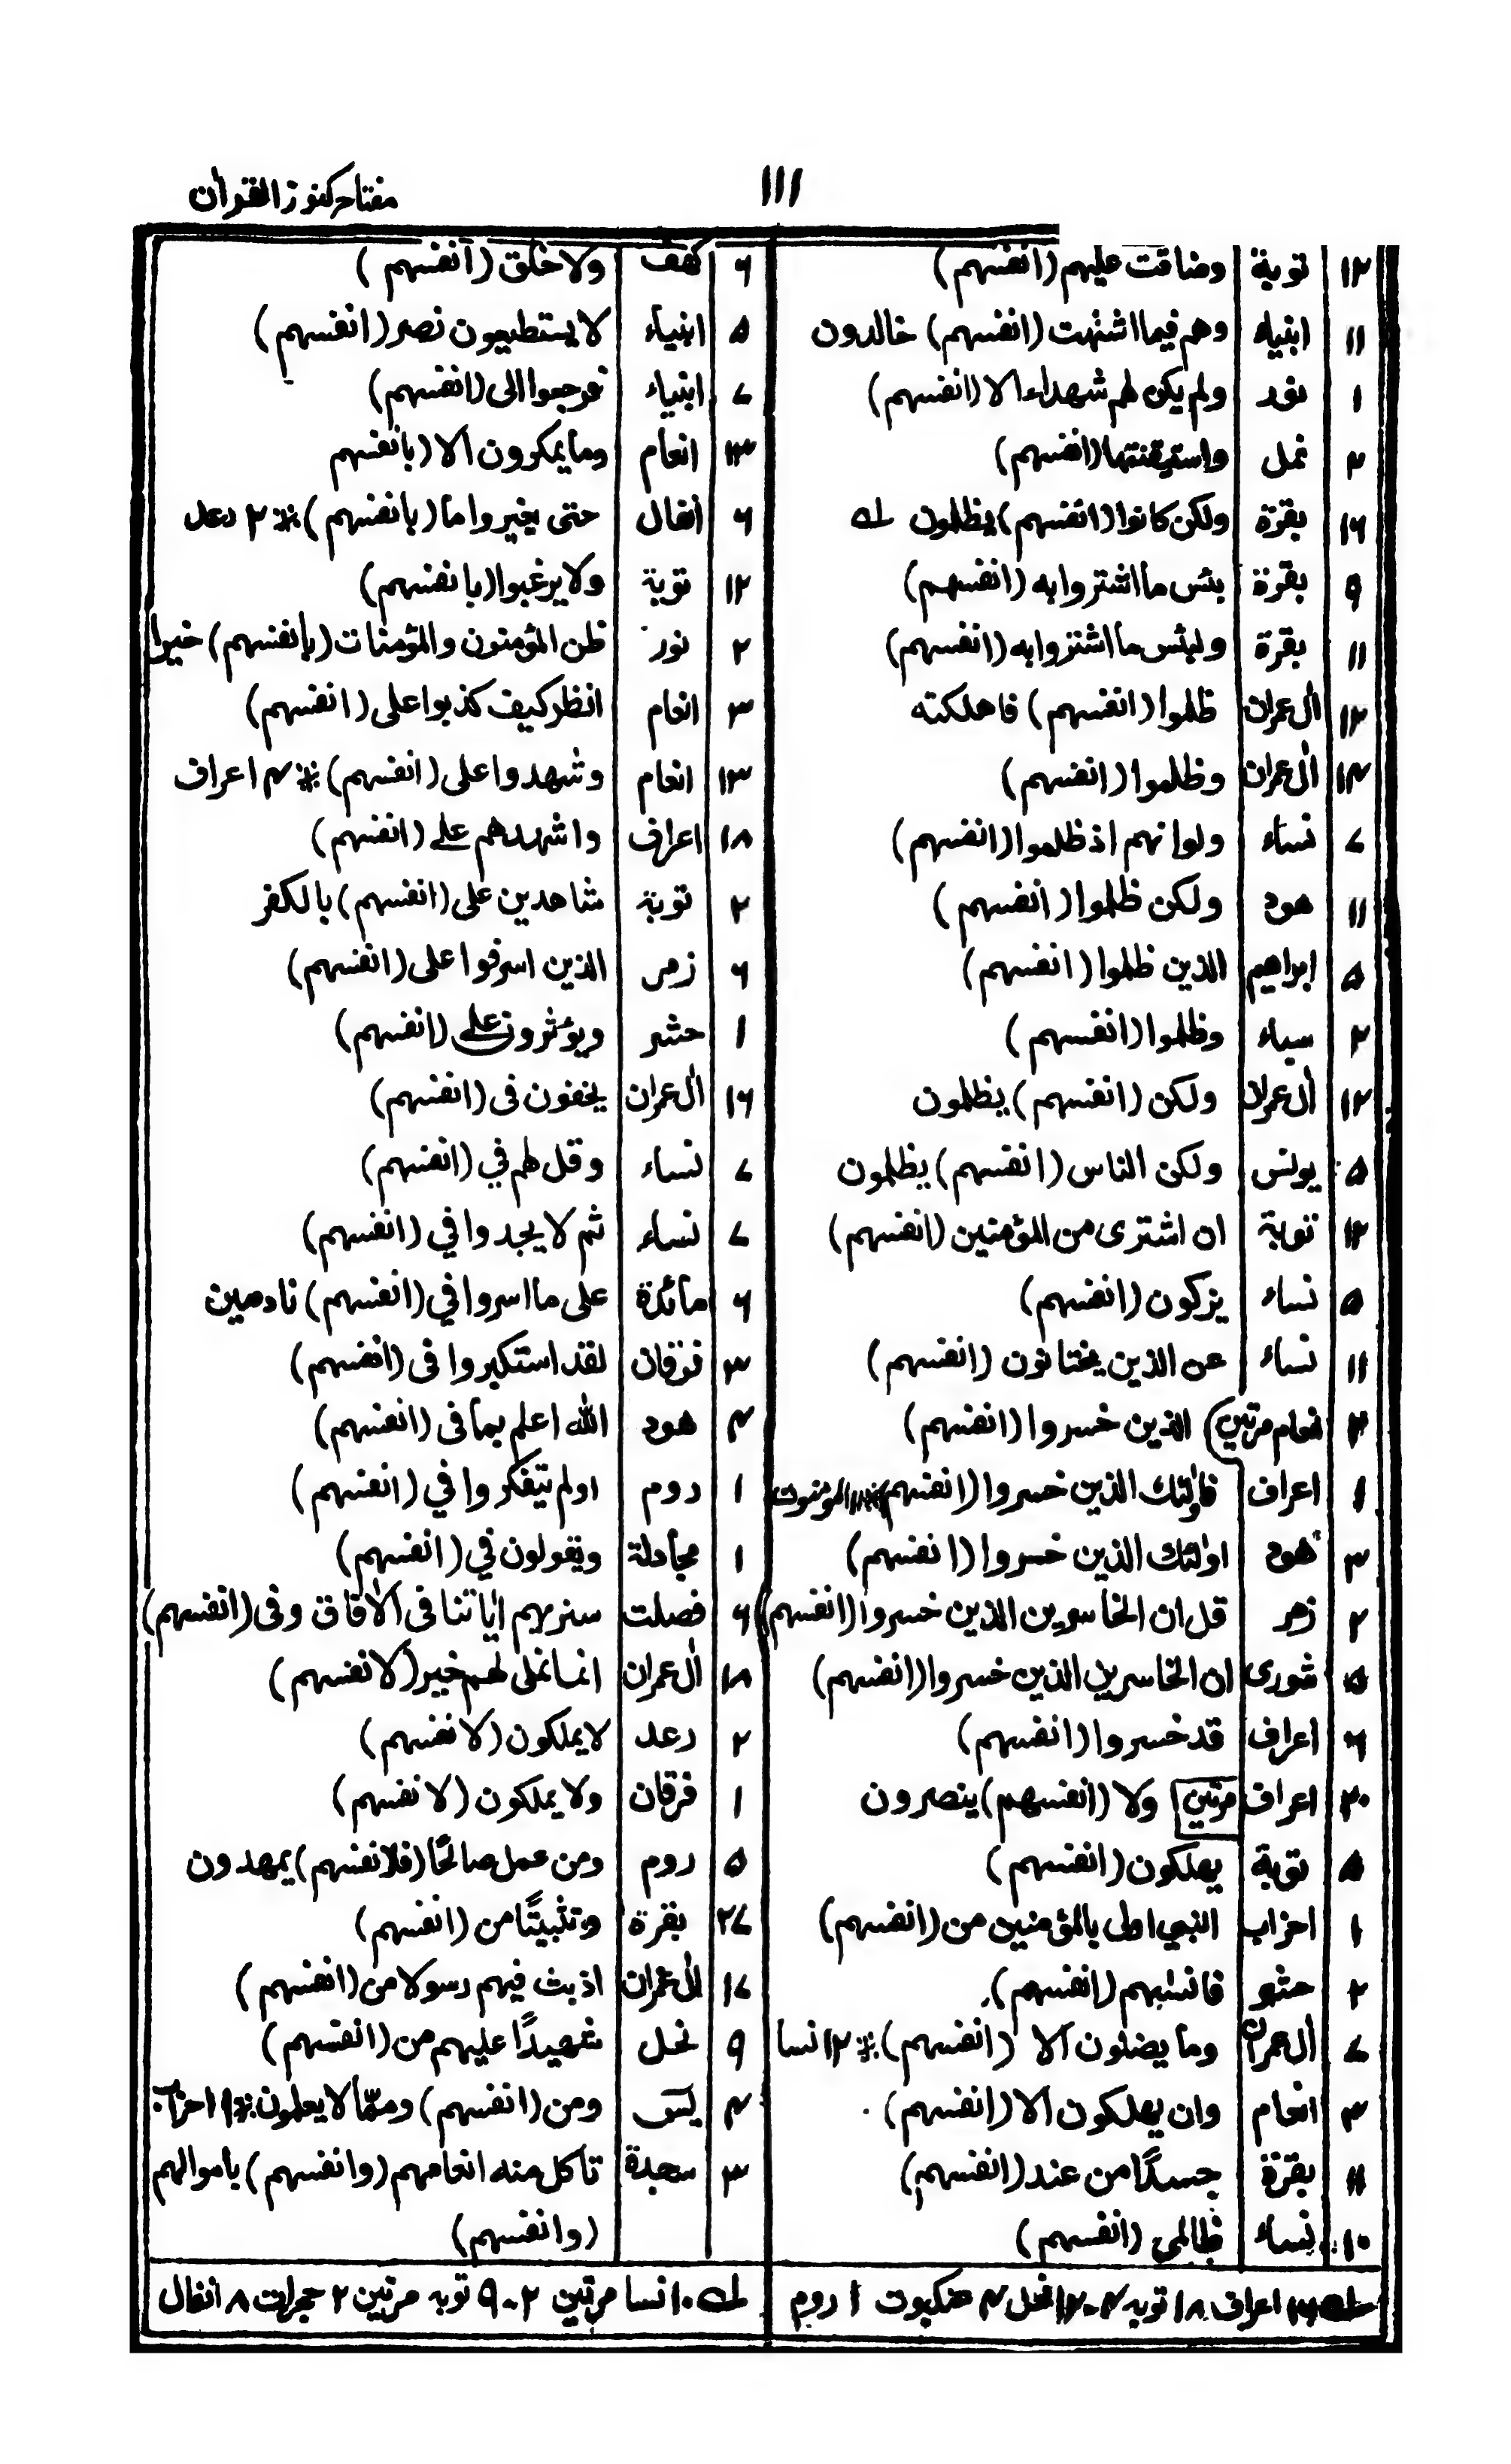 مفتاح كنوز القرأن
١١١
١٢ توبة وضاقت عليهم (انفسهم)
١١ ابنياء وهم فيما اشتهت (انفسهم) خالدون
١ نور ولم يكن لهم شهداء الا (انفسهم)
٢ نمل واستيقنتها (انفسهم)
١٦ بقرة ولكن كانوا (انفسهم) يظلمون لـه
٩ بقرة بئس ما اشتروا به (انفسهم)
١١ بقرة ولبئس ما اشتروا به (انفسهم)
١٢ أل عمران ظلموا (انفسهم) فاهلكته
١٤ أل عمران وظلموا (انفسهم)
٧ نساء ولو انهم اذ ظلموا (انفسهم)
١١ هود ولكن ظلموا (انفسهم)
٥ ابراهيم الذين ظلموا (انفسهم)
٢ سباء وظلموا (انفسهم)
١٢ أل عمران ولكن (انفسهم) يظلمون
٥ يونس ولكن الناس (انفسهم) يظلمون
١٢ توبة ان اشترى من المؤمنين (انفسهم)
٥ نساء يزكون (انفسهم)
١١ نساء عن الذين يختانون (انفسهم)
٢ انعام مرتين) الذين خسروا (انفسهم)
١ اعراف فأولئك الذين خسروا (انفسهم) المومنون
٣ هود اولئك الذين خسروا (انفسهم)
٢ زمر قل ان الخاسرين الذين خسروا (انفسهم)
٥ شورى ان الخاسرين الذين خسروا (انفسهم)
٦ اعراف قد خسروا (انفسهم)
٢٠ اعراف مرتين ولا (انفسهم) ينصرون
٥ توبة يهلكون (انفسهم)
١ احزاب النبي اولى بالمؤمنين من (انفسهم)
٢ حشر فانسٰهم (انفسهم)
٧ أل عمران وما يضلون الا (انفسهم) ※ ١٢ نسا
٣ انعام وان يهلكون الا (انفسهم)
١١ بقرة حسدًا من عند (انفسهم)
١٠ نساء ظالمي (انفسهم)
١٦ اعراف ١٨ توبه ٤-١٢ نحل ٤ عنكبوت ١ روم
٦ كهف ولا خلق (انفسهم)
٥ ابنياء لا يستطيعون نصر (انفسهم)
٧ ابنياء فرجعوا الى (انفسهم)
١٣ انعام وما يمكرون الا (بانفسهم
٦ انفال حتى يغيروا ما (بانفسهم) ※ ٢ رعد
١٢ توبة ولا يرغبوا (بانفسهم)
٢ نور ظن المؤمنون والمؤمنات (بانفسهم) خيرا
٣ انعام انظر كيف كذبوا على (انفسهم)
١٣ انعام وشهدوا على (انفسهم) ※ ٤ اعراف
١٨ اعراف واشهدهم على (انفسهم)
٢ توبة شاهدين على (انفسهم) بالكفر
٦ زمر الذين اسرفوا على (انفسهم)
١ حشر ويؤثرون على (انفسهم)
١٦ أل عمران يخفون فى (انفسهم)
٧ نساء وقل لهم في (انفسهم)
٧ نساء ثم لا يجدوا في (انفسهم)
٦ مائدة على ما اسروا في (انفسهم) نادمين
٣ فرقان لقد استكبروا فى (انفسهم)
٤ هود الله اعلم بما فى (انفسهم)
١ روم اولم يتفكروا في (انفسهم)
١ مجادلة ويقولون في (انفسهم)
٦ فصلت سنريهم أياتنا فى الأفاق وفى (انفسهم)
١٨ أل عمران انما نملى لهم خير (لانفسهم)
٢ رعد لا يملكون (لانفسهم)
١ فرقان ولا يملكون (لانفسهم)
٥ روم ومن عمل صالحًا (فلانفسهم) يمهدون
٢٧ بقرة وتثبيتًا من (انفسهم)
١٧ أل عمران اذ بعث فيهم رسولا من (انفسهم)
٩ نحل شهيدًا عليهم من (انفسهم)
٤ يٰس ومن (انفسهم) ومما لا يعلمون ※ ١ احزاب
٣ سجدة تاكل منه انعامهم (وانفسهم) باموالهم
(وانفسهم)
لـه ١٠ نسا مرتين ٢-٩ توبه مرتين ٢ حجرات ٨ انفال